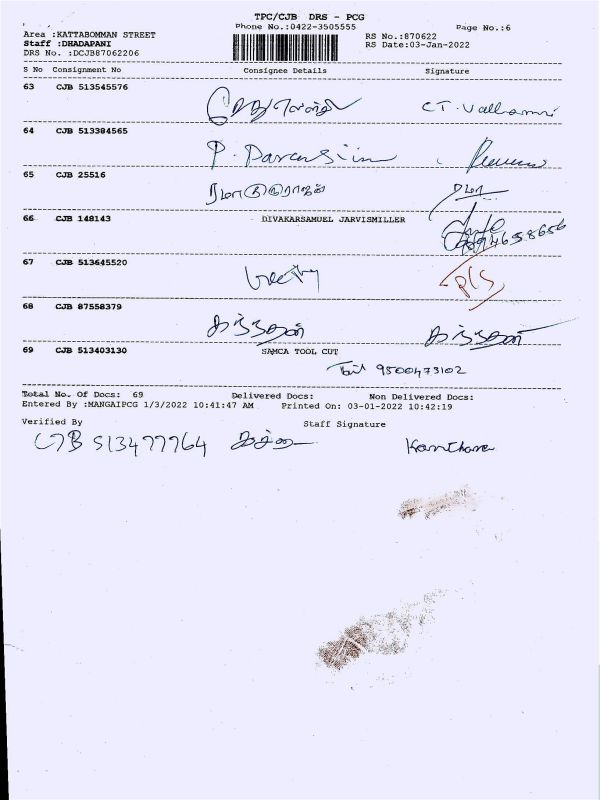 TPC/CJB DRS - PCG
Phone No.:0422-3505555
Page No.:6
Area :KATTABOMMAN STREET
RS No.:870622
Staff :DHADAPANI
RS Date:03-Jan-2022
DRS No. :DCJB87062206
S No Consignment No Consignee Details Signature
63 CJB 513545576
64 CJB 513384565
65 CJB 25516
66 CJB 148143 DIVAKARSAMUEL JARVISMILLER
67 CJB 513645520
68 CJB 87558379
69 CJB 513403130 SAMCA TOOL CUT
9500473102
Total No. Of Docs: 69 Delivered Docs: Non Delivered Docs:
Entered By :MANGAIPCG 1/3/2022 10:41:47 AM Printed On: 03-01-2022 10:42:19
Verified By Staff Signature
CJB 513477764